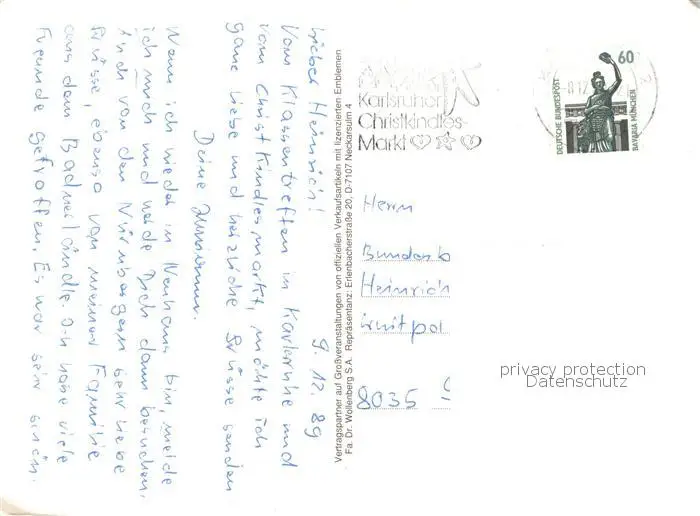 9. 12. 89
Lieber Heinrich!
Vom Klassentreffen in Karlsruhe und
vom Christkindlesmarkt, möchte ich
ganz liebe und herzliche Grüsse senden
Deine
Wenn ich wieder in bin, melde
ich mich und werde Dich dann besuchen.
Auch von den Nürnbergern sehr liebe
Grüsse, ebenso von meiner Familie
aus dem Badnerländle. Ich habe viele
Freunde getroffen. Es war sehr schön.
Vertragspartner auf Großveranstaltungen von offiziellen Verkaufsartikeln mit lizenzierten Emblemen
Fa. Dr. Wollenberg S.A. Repräsentanz: Erlenbacherstraße 20, D-7107 Neckarsulm
Karlsruher
Christkindles-
Markt
8.12
60
DEUTSCHE BUNDESPOST
BAVARIA MÜNCHEN
Herrn
Bundesb
Heinrich
8035
privacy protection
Datenschutz